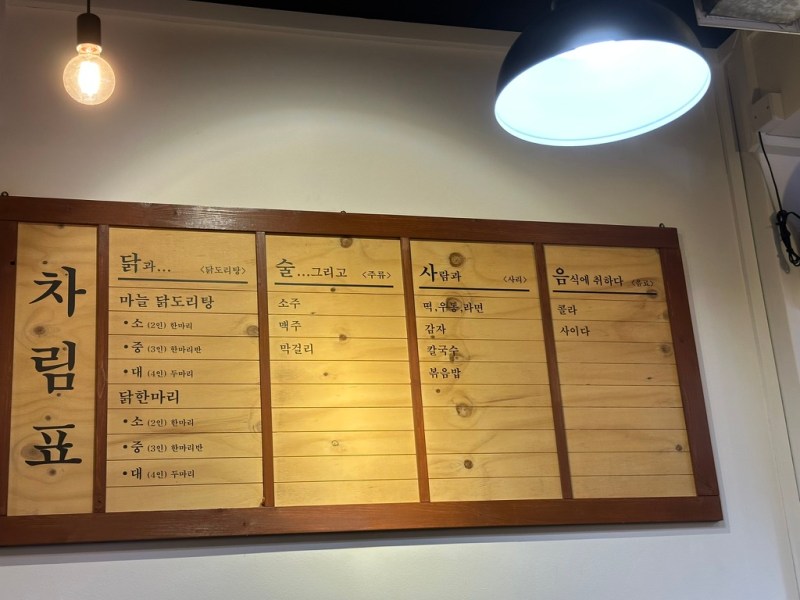 차림표
닭과... <닭도리탕>
마늘 닭도리탕
• 소 (2인) 한마리
• 중 (3인) 한마리반
• 대 (4인) 두마리
닭한마리
• 소 (2인) 한마리
• 중 (3인) 한마리반
• 대 (4인) 두마리
술...그리고 <주류>
소주
맥주
막걸리
사람과 <사리>
떡,우동,라면
감자
칼국수
볶음밥
음식에 취하다
콜라
사이다